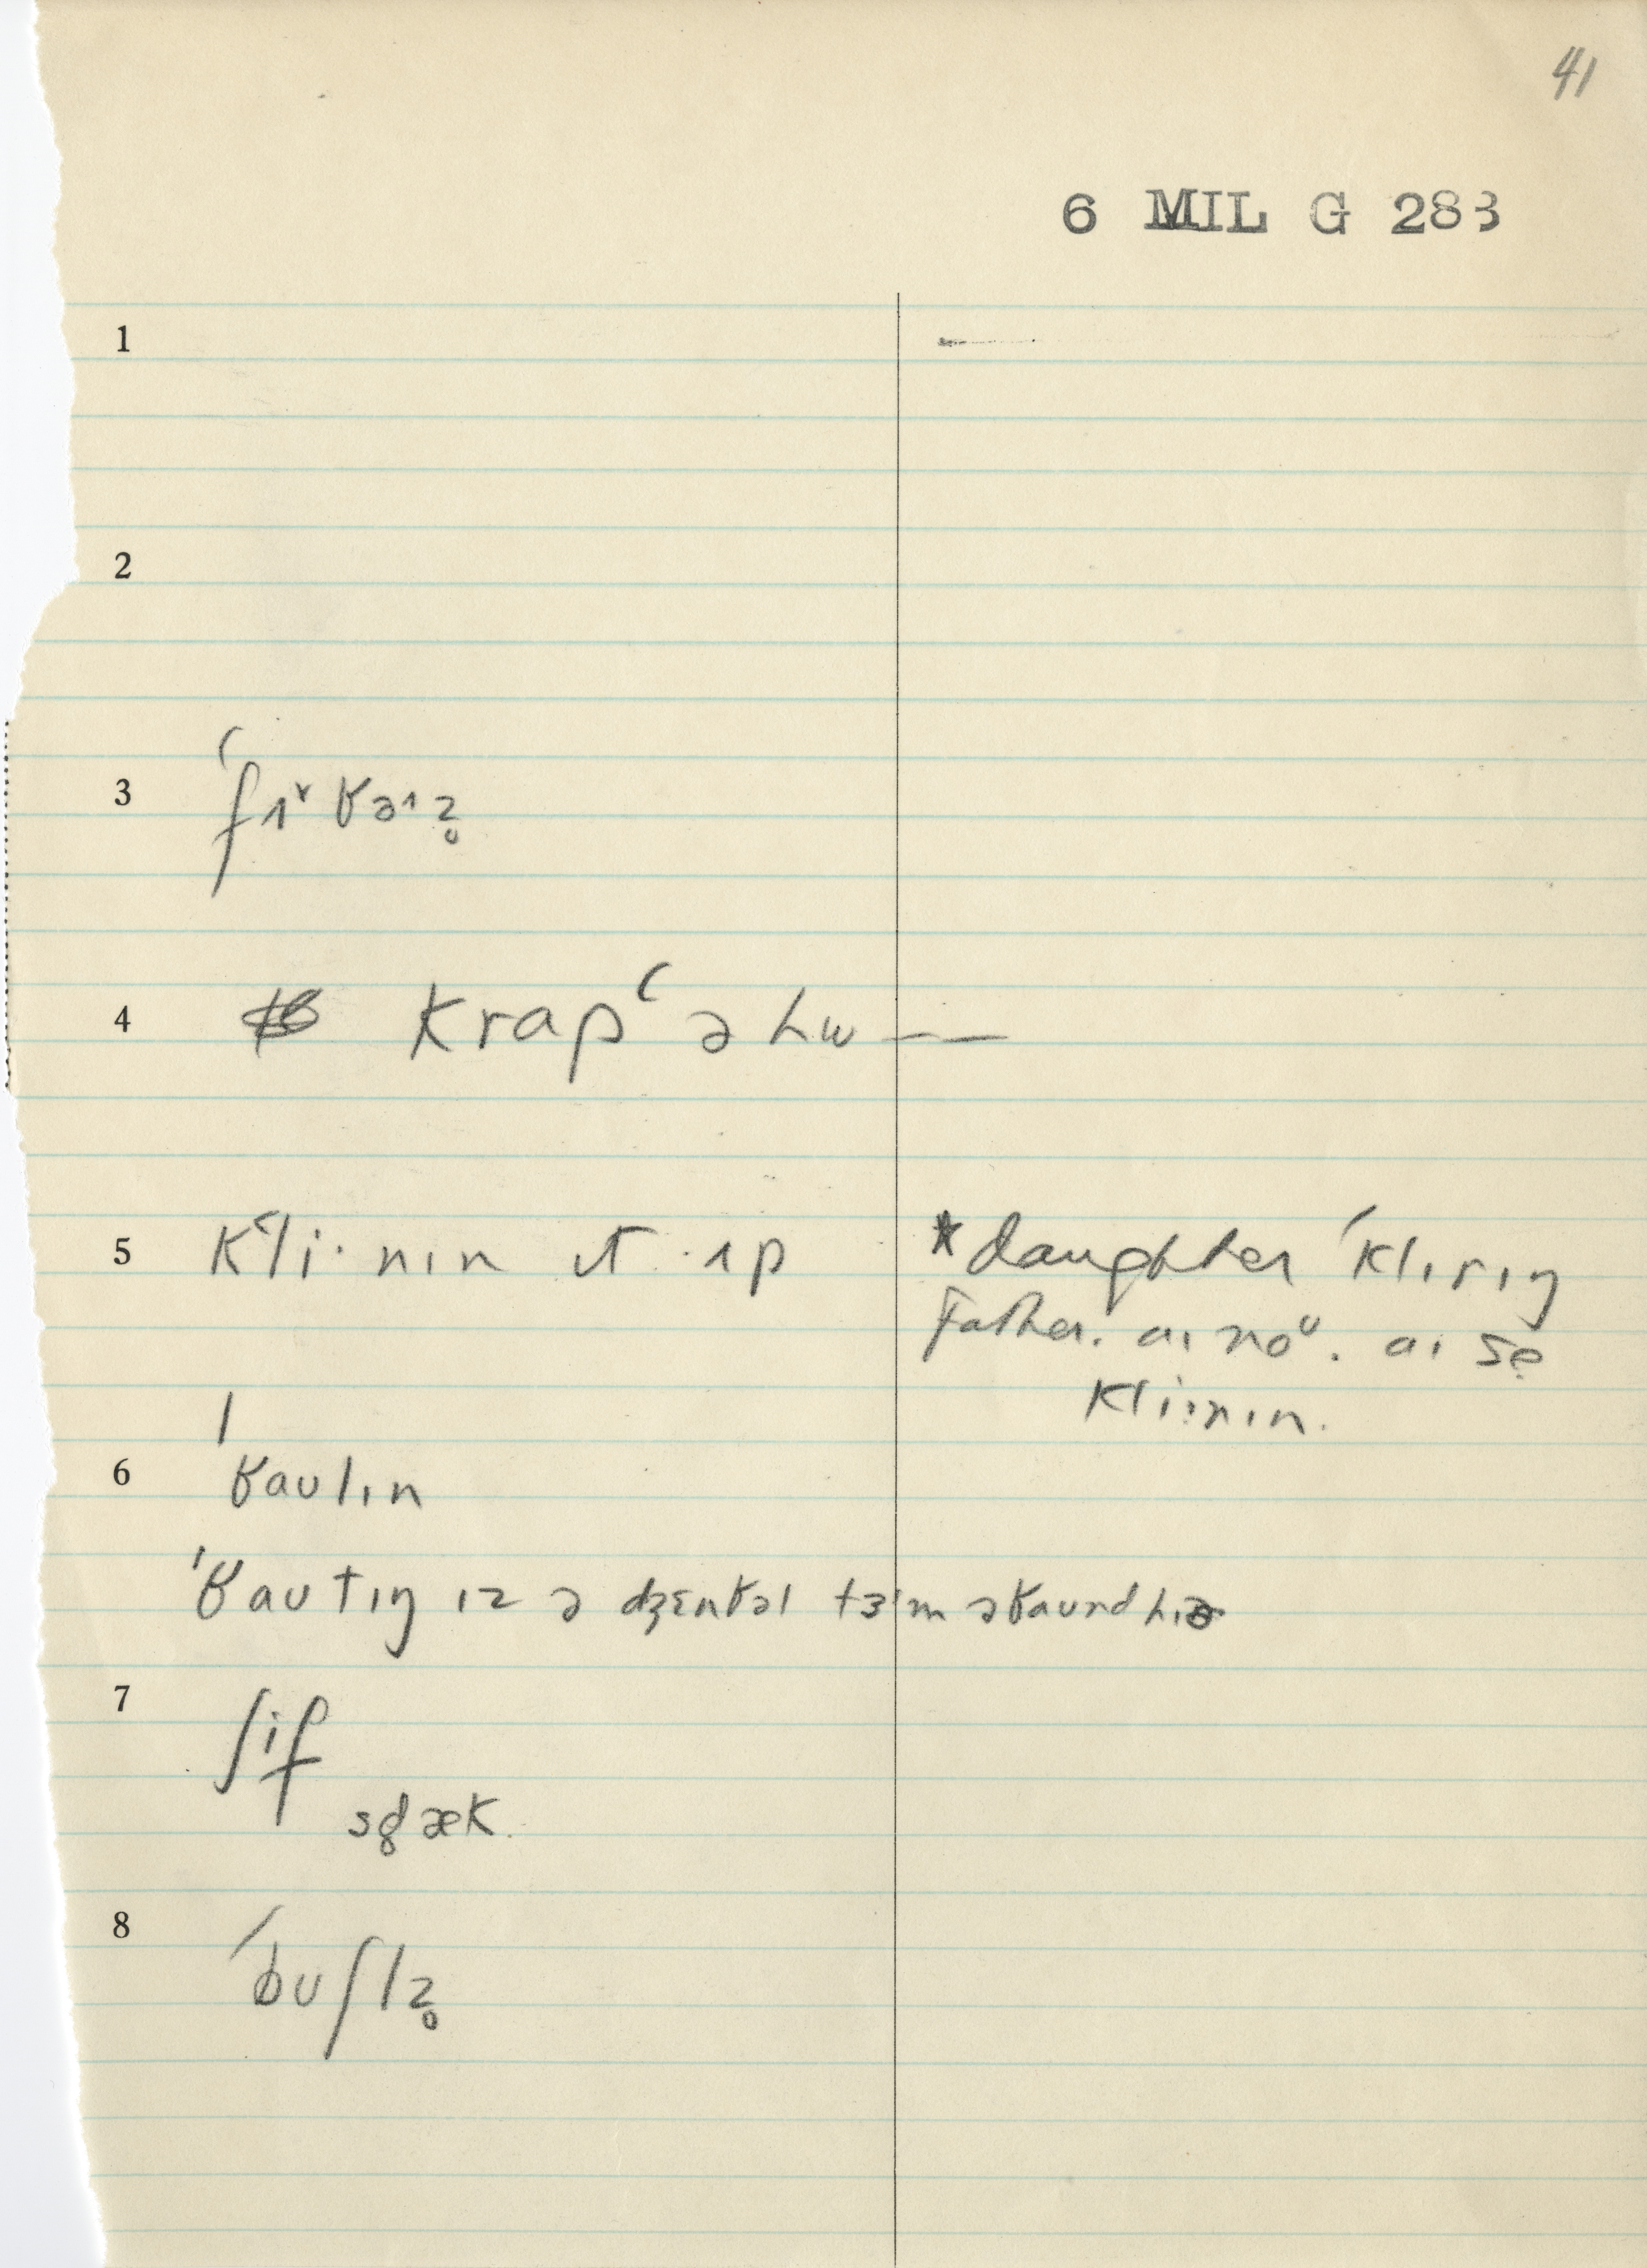 41
6 MIL G 283
1
2
3 ˈfɪᵛ ɓəɪz̥
4 krapʿ ə hw——
5 Kʿli·nɪn ɪt ·ɪp
*daughter ˈklɪrɪŋ
Father. aɪ noᵁ. aɪ se
kli:nɪn.
6 ˈɓaulɪn
ˈɓautɪŋ ɪz ə dʒɛntəl tɜˈm əɓaund hɪə
7 ʃif
sgæk.
8 ˈbuʃlz̥